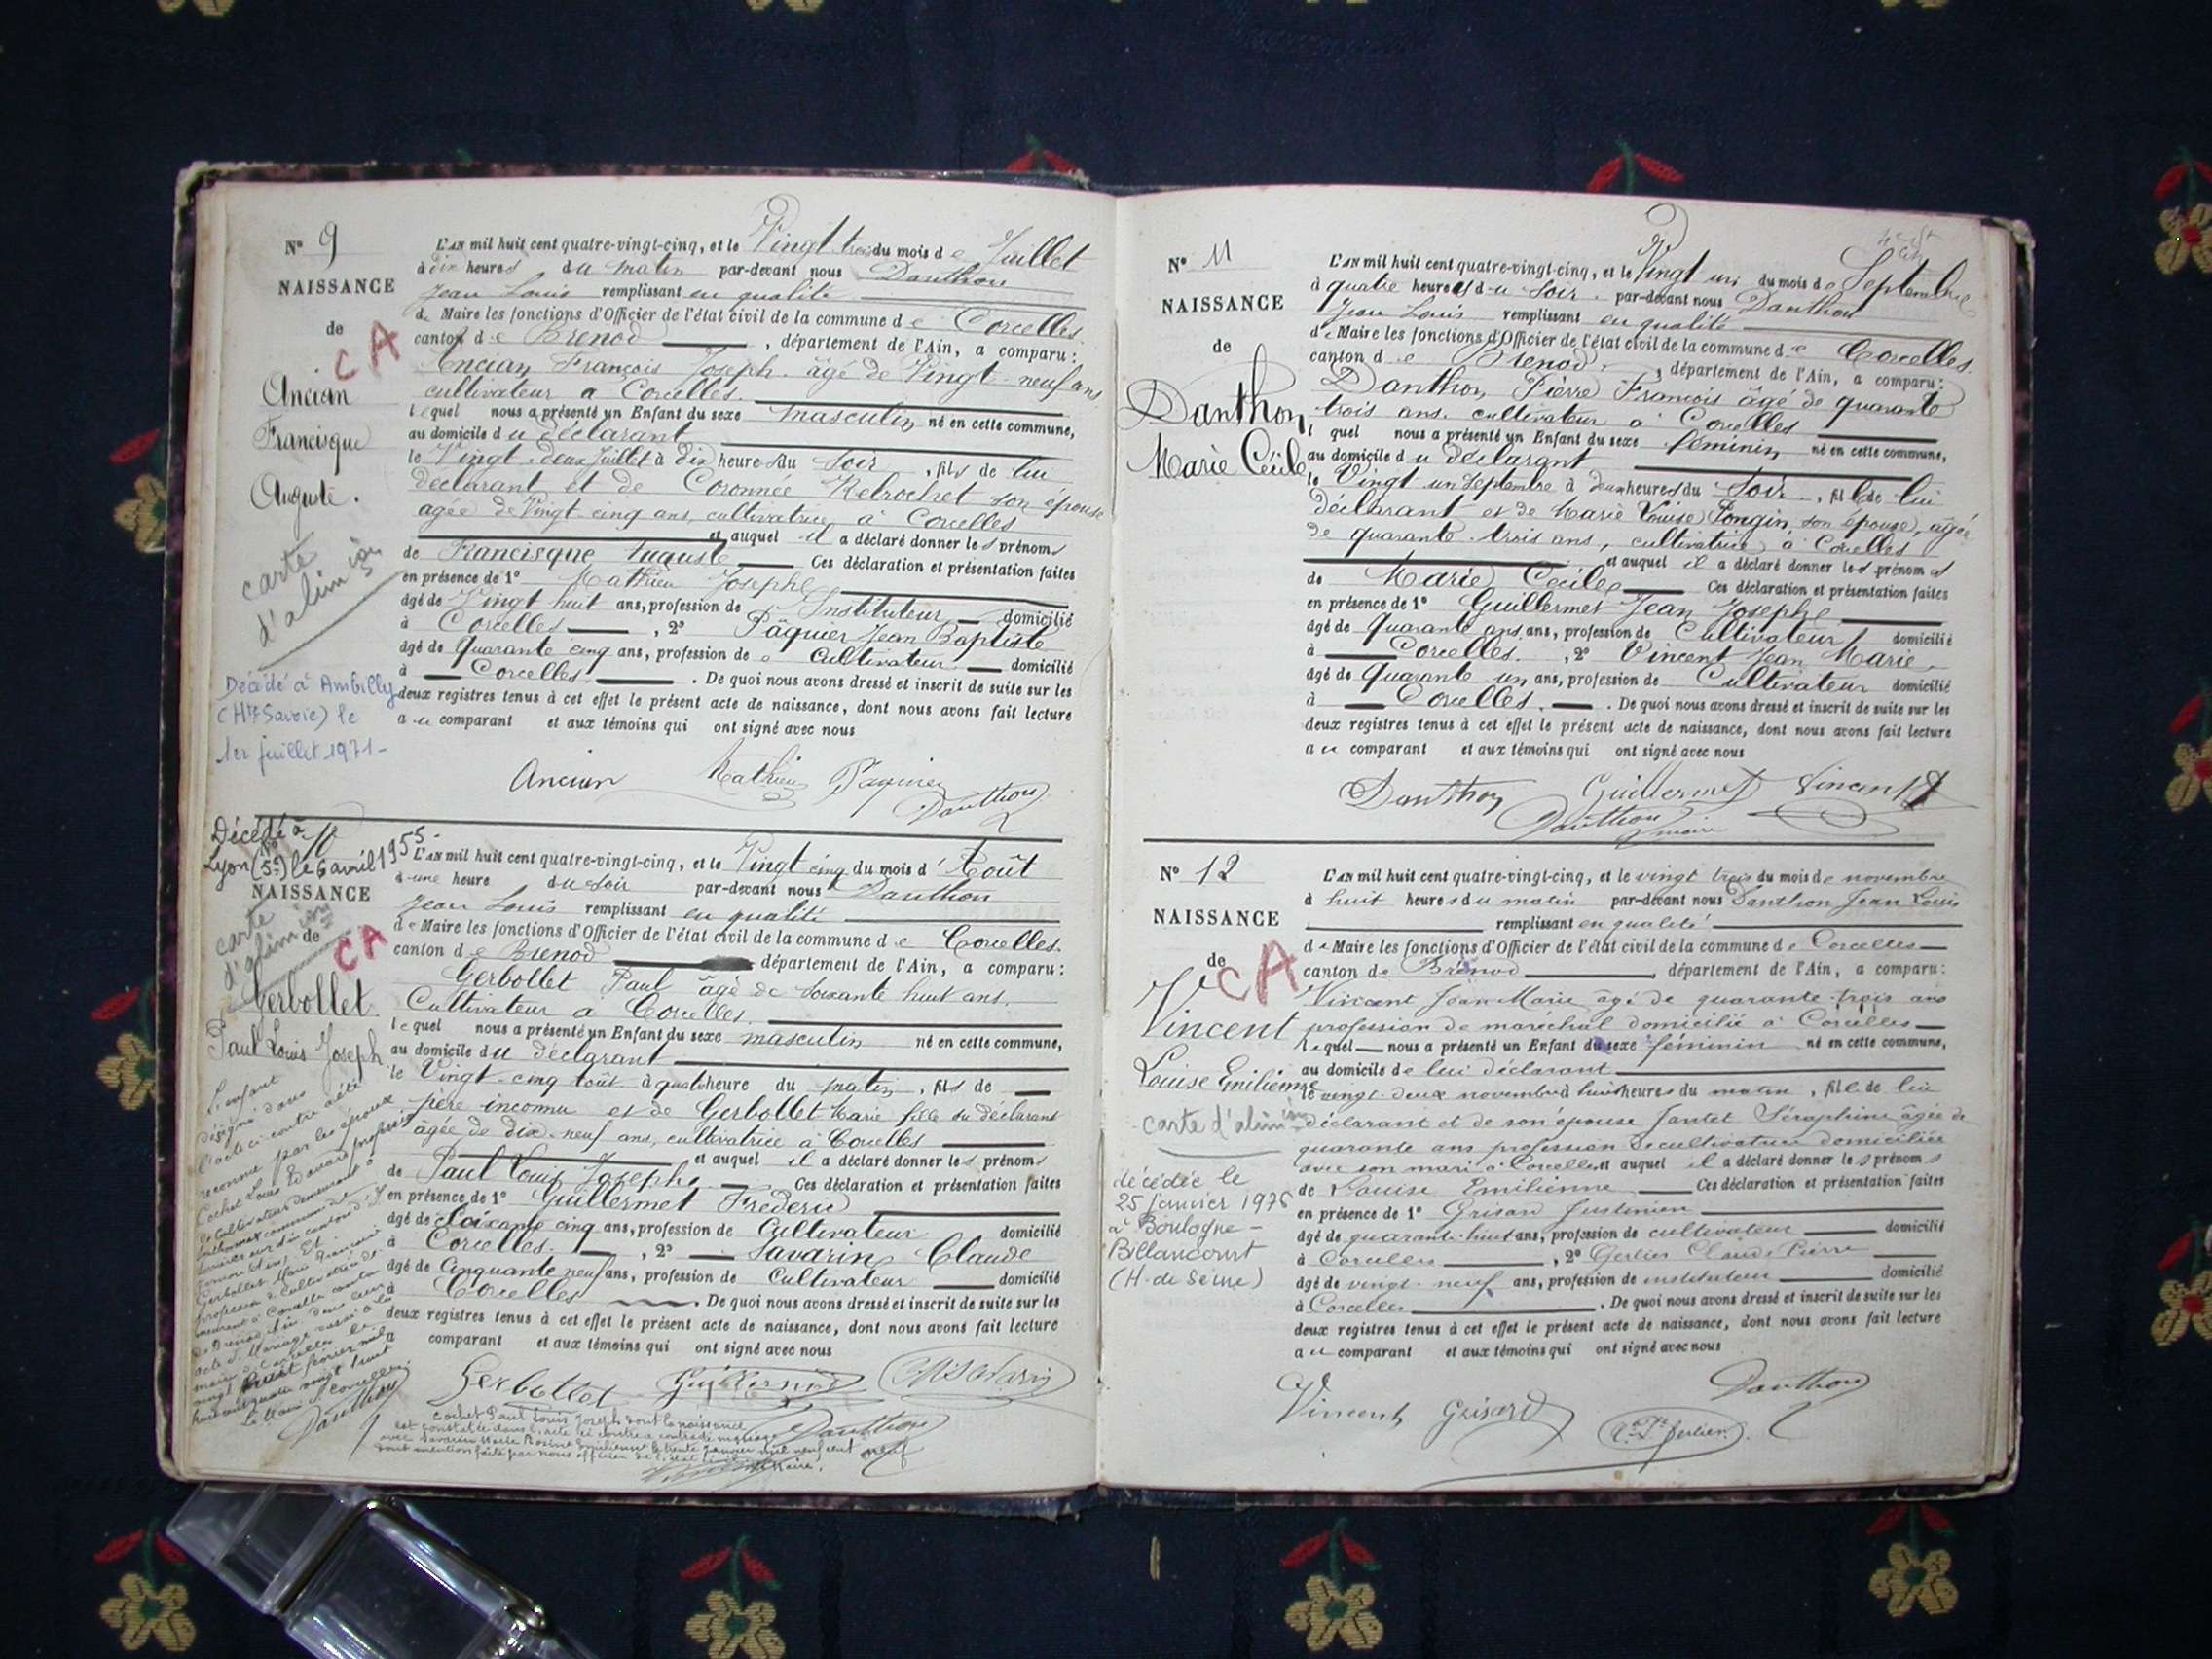 N° 9
NAISSANCE
de
CA
Ancian
Francisque
Auguste.
carte
d'alim ion
Décédé à Ambilly
(Hte Savoie) le
1er juillet 1971-
L'AN mil huit cent quatre-vingt-cinq, et le Vingt trois du mois de Juillet
à dix heures du matin par-devant nous Danthon
Jean Louis remplissant en qualité
de Maire les fonctions d'Officier de l'état civil de la commune de Corcelles
canton de Brenod, département de l'Ain, a comparu :
Ancian François Joseph âgé de Vingt-neuf ans
cultivateur a Corcelles.
lequel nous a présenté un Enfant du sexe masculin né en cette commune,
au domicile du déclarant
le Vingt-deux Juillet à dix heures du Soir, fils de lui
déclarant et de Coronnée Retrochet son épouse
agée de Vingt-cinq ans, cultivatrice à Corcelles
et auquel il a déclaré donner les prénoms
de Francisque Auguste Ces déclaration et présentation faites
en présence de 1° Mathieu Josephe
âgé de Vingt huit ans, profession de Instituteur domicilié
à Corcelles, 2° Pâquier Jean Baptiste
âgé de Quarante cinq ans, profession de Cultivateur domicilié
à Corcelles. De quoi nous avons dressé et inscrit de suite sur les
deux registres tenus à cet effet le présent acte de naissance, dont nous avons fait lecture
au comparant et aux témoins qui ont signé avec nous
Ancian Mathieu Paquier
Danthon
Décédé à
Lyon (5e) le 6 avril 1955-
N° 10
NAISSANCE
de
carte
d'alim ion
CA
Gerbollet
Paul Louis Joseph
L'enfant
désigné dans
l'acte ci-contre a été
reconnu par les époux
Cochet Louis Edouard profession
de Cultivateur demeurant à
Gerbollet Marie
profession de Cultivatrice de-
meurant à Corcelles canton
de Brenod
acte de Mariage
vingt huit février mil
huit cent quatre vingt huit
Le Maire de Corcelles
Danthon
L'AN mil huit cent quatre-vingt-cinq, et le Vingt cinq du mois d'Août
à une heure du soir par-devant nous Danthon
Jean Louis remplissant en qualité
de Maire les fonctions d'Officier de l'état civil de la commune de Corcelles.
canton de Brenod département de l'Ain, a comparu :
Gerbollet Paul âgé de Soixante huit ans.
Cultivateur a Corcelles.
lequel nous a présenté un Enfant du sexe masculin né en cette commune,
au domicile du déclarant
le Vingt-cinq Août à quatre heure du matin, fils de
père inconnu et de Gerbollet Marie fille du déclarant
âgée de dix-neuf ans, cultivatrice à Corcelles
et auquel il a déclaré donner les prénoms
de Paul Louis Josephe. Ces déclaration et présentation faites
en présence de 1° Guillermet Frederic
âgé de Soixante cinq ans, profession de Cultivateur domicilié
à Corcelles., 2° Savarin Claude
âgé de Cinquante neuf ans, profession de Cultivateur domicilié
à Corcelles. De quoi nous avons dressé et inscrit de suite sur les
deux registres tenus à cet effet le présent acte de naissance, dont nous avons fait lecture
a comparant et aux témoins qui ont signé avec nous
Gerbollet Guillermet Savarin
Cochet Paul Louis Joseph dont la naissance
est constatée dans l'acte ci contre a contracté mariage
avec Savarin Marie Rosine Emilienne le trente janvier mil neuf cent neuf
dont mention faite par nous officier de l'état civil
Danthon
maire.
N° 11
NAISSANCE
de
Danthon
Marie Cécile
L'AN mil huit cent quatre-vingt-cinq, et le Vingt un du mois de Septembre
à quatre heures du Soir. par-devant nous Danthon
Jean Louis remplissant en qualité
de Maire les fonctions d'Officier de l'état civil de la commune de Corcelles.
canton de Brenod, département de l'Ain, a comparu :
Danthon Pièrre François âgé de quarante
trois ans. cultivateur à Corcelles
l quel nous a présenté un Enfant du sexe féminin né en cette commune,
au domicile du déclarant
le Vingt un Septembre à deux heures du Soir, fille de lui
déclarant et de Marie Louise Pongin, son épouse, âgée
de quarante-trois ans, cultivatrice à Corcelles
et auquel il a déclaré donner les prénoms
de Marie Cécile Ces déclaration et présentation faites
en présence de 1° Guillermet Jean Josephe
âgé de Quarante ans ans, profession de Cultivateur domicilié
à Corcelles., 2° Vincent Jean Marie
âgé de Quarante un ans, profession de Cultivateur domicilié
à Corcelles. De quoi nous avons dressé et inscrit de suite sur les
deux registres tenus à cet effet le présent acte de naissance, dont nous avons fait lecture
au comparant et aux témoins qui ont signé avec nous
Danthon Guillermet Vincent
Danthon
maire
N° 12
NAISSANCE
de
CA
Vincent
Louise Emilienne
carte d'alim ion
décédée le
25 Janvier 1976
à Boulogne-
Billancourt
(H. de Seine)
L'AN mil huit cent quatre-vingt-cinq, et le vingt trois du mois de novembre
à huit heures du matin par-devant nous Danthon Jean Louis
remplissant en qualité
de Maire les fonctions d'Officier de l'état civil de la commune de Corcelles
canton de Brénod, département de l'Ain, a comparu :
Vincent Jean-Marie âgé de quarante-trois ans
profession de maréchal domicilié à Corcelles
lequel nous a présenté un Enfant du sexe féminin né en cette commune,
au domicile de lui déclarant
le vingt-deux novembre à huit heures du matin, fille de lui
déclarant et de son épouse Jantet Séraphine âgée de
quarante ans profession de cultivatrice domiciliée
avec son mari à Corcelles et auquel il a déclaré donner les prénoms
de Louise Emilienne Ces déclaration et présentation faites
en présence de 1° Grisard Justinien
âgé de quarante-huit ans, profession de cultivateur domicilié
à Corcelles, 2° Gerlier Claude Pierre
âgé de vingt-neuf ans, profession de instituteur domicilié
à Corcelles. De quoi nous avons dressé et inscrit de suite sur les
deux registres tenus à cet effet le présent acte de naissance, dont nous avons fait lecture
au comparant et aux témoins qui ont signé avec nous
Danthon
Vincent Grisard
Gerlier